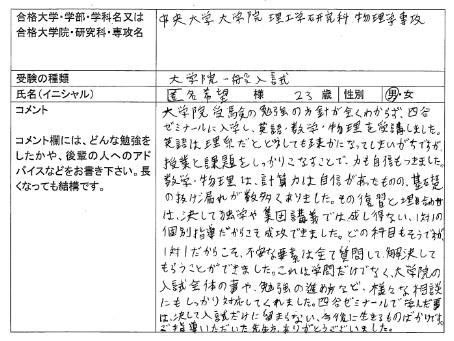 合格大学・学部・学科名又は
合格大学院・研究科・専攻名
中央大学大学院 理工学研究科 物理学専攻
受験の種類
大学院一般入試
氏名(イニシャル)
匿名希望 様 23 歳 性別 男・女
コメント
コメント欄には、どんな勉強を
したかや、後輩の人へのアド
バイスなどをお書き下さい。長
くなっても結構です。
大学院受験の勉強の方針が全くわからず、四谷
ゼミナールに入学し、英語・数学・物理を受講しました。
英語は理系だとどうしても疎かになってしまいがちですが、
授業と課題をしっかりこなすことで、力も自信もつきました。
数学・物理は、計算力は自信があったものの、基礎
の抜け漏れが数多くありました。その復習と埋め合わせ
は、決して独学や集団講義では成し得ない、1対1の
個別指導だからこそ成功できました。どの科目もそうですが
1対1だからこそ、不安な要素は全て質問して、解決して
もらうことができました。これは学問だけでなく、大学院の
入試全体の事や、勉強の進め方など、様々な相談
にもしっかり対応してくれました。四谷ゼミナールで学んだ事
は、決して入試だけに留まらない、今後に生きるものばかりです。
ご指導いただいた先生方、ありがとうございました。